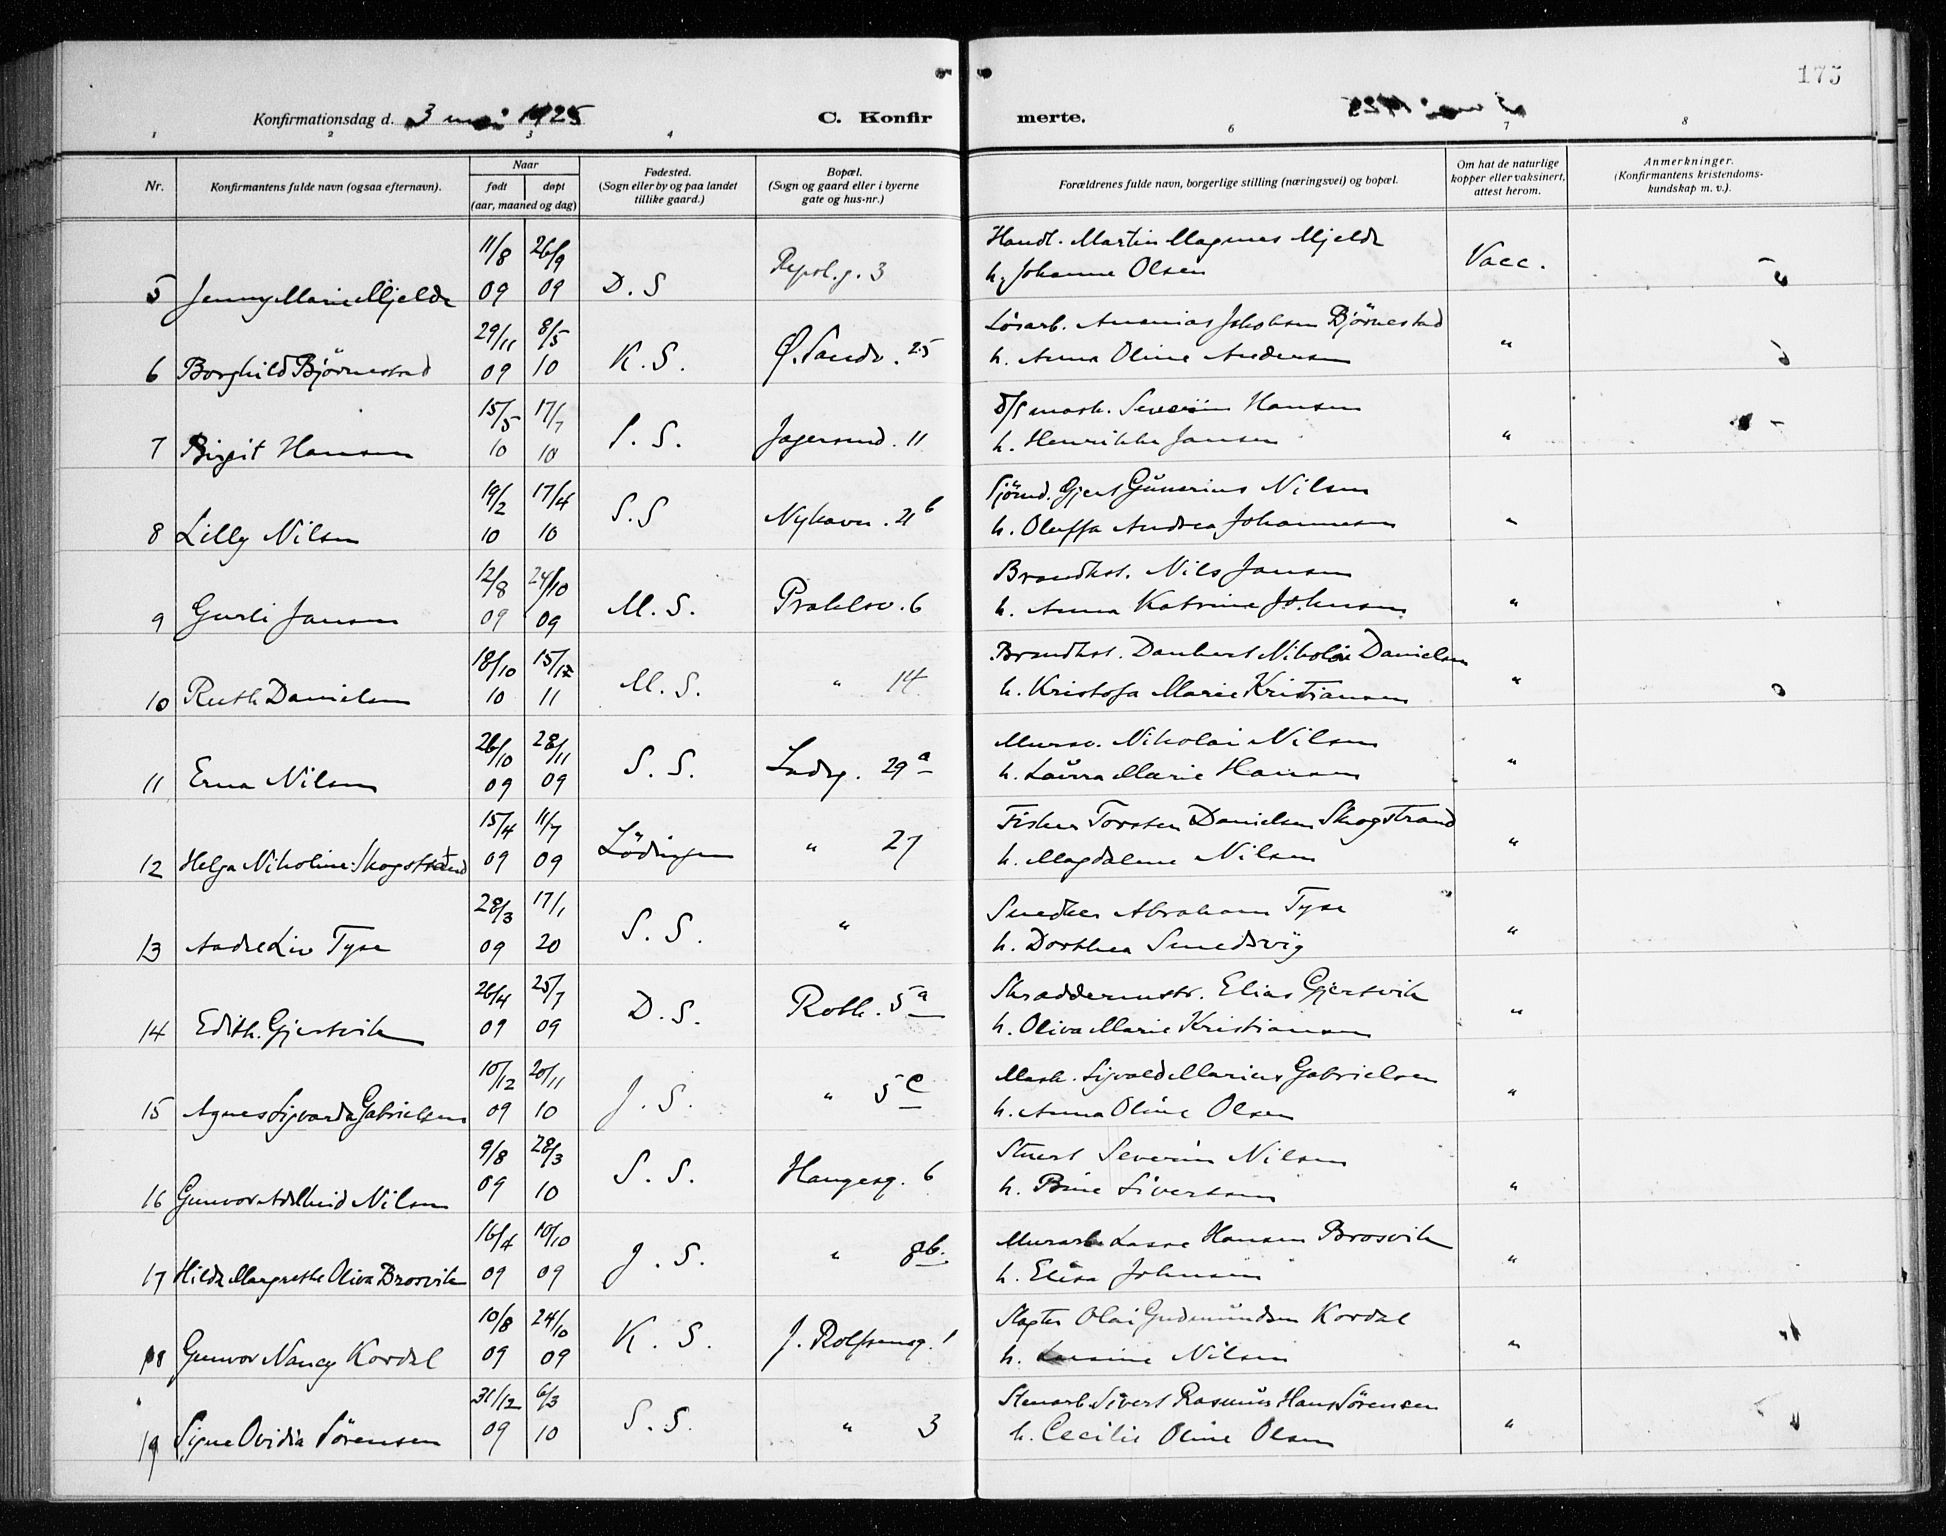 175
Konfirmationsdag d. 3 mai 1925 C. Konfirmerte. 3 mai 1925
1 2 3 4 5 6 7 8
Nr. Konfirmantens fulde navn (ogsaa efternavn). Naar født døpt (aar, maaned og dag) Fødested. (Sogn eller by og paa landet tillike gaard.) Bopæl. (Sogn og gaard eller i byerne gate og hus-nr.) Forældrenes fulde navn, borgerlige stilling (næringsvei) og bopæl. Om hat de naturlige kopper eller vaksinert, attest herom. Anmerkninger. (Konfirmantens kristendomskundskap m. v.).
11/8 26/9 Handl. Martin Magnus Mjelde
5 Jenny Marie Mjelde 09 09 D. S 3 h. Johanne Olsen Vacc.
29/11 8/5 Løsarb. Ananias Jakobsen Bjørnestad
6 Borghild Bjørnestad 09 10 K. S. Ø. Sandv. 25 h. Anna Oline Andersen "
15/5 17/7 mask. Severin Hansen
7 Birgit Hansen 10 10 S. S. Jagersund. 11 h. Henrikke Jansen "
19/2 17/4 Sjömd. Gjert Gunerius Nilsen
8 Lilly Nilsen 10 10 S. S Nyhavn. 21 b h. Oluffa Andrea Johannesen "
12/8 24/10 Brandkst. Nils Jansen
9 Gurli Jansen 09 09 M. S. 6 h. Anna Katrine Johnsen "
18/10 15/12 Brandkst. Danbert Nikolai Danielsen
10 Ruth Danielsen 10 11 M. S. " 14 h. Kristofa Marie Kristiansen "
26/10 28/11 Mursv. Nikolai Nilsen
11 Erna Nilsen 09 09 S. S. Ladeg. 29 a h. Laura Marie Hansen "
15/4 11/7 Fisker Torsten Danielsen Skogstrand
12 Helga Nikoline Skogstrand 09 09 Lödingen " 27 h. Magdalene Nilsen "
28/3 17/1 Snedker Abraham Tyse
13 Andre Liv Tyse 09 20 S. S. " h. Dorthea Smedsvig "
26/4 25/7 Skræddermstr. Elias Gjertsvik
14 Edith Gjertsvik 09 09 D. S. Roth. 5 a h. Oliva Marie Kristiansen "
10/12 20/11 Mask. Sigvald Marius Gabrielsen
15 Agnes Sigvarda Gabrielsen 09 10 J. S. " 5 c h. Anna Oline Olsen "
9/8 28/3 Stuert Severin Nilsen
16 Gunvor Adelheid Nilsen 09 10 S. S. Haugesg. 6 h. Bine Sivertsen "
16/4 10/10 Murarb. Lasse Hansen Brosvik
17 Hilda Margrethe Oliva Brosvik 09 09 J. S. " 8 b. h. Elisa Johnsen "
10/8 24/10 Slagter Olai Gudmundsen Kordal
18 Gunvor Nancy Kordal 09 09 K. S. J. Rolfsensg. 1 h. Nilsen "
31/12 6/3 Stenarb. Sivert Rasmus Hans Sörensen
19 Signe Ovidia Sörensen 09 10 S. S. " 3 h. Cecilie Oline Olsen "